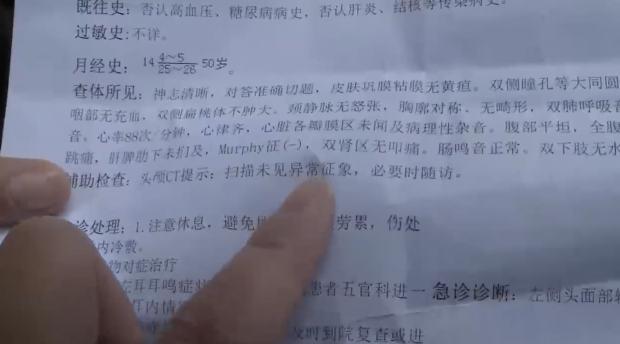 既往史: 否认高血压、糖尿病病史, 否认肝炎、结核等传染病史
过敏史: 不详。
月经史: 14 4~5/25~28 50岁。
查体所见: 神志清晰, 对答准确切题, 皮肤巩膜粘膜无黄疸。双侧瞳孔等大同圆
咽部无充血, 双侧扁桃体不肿大。颈静脉无怒张, 胸廓对称、无畸形, 双肺呼吸音
音。心率88次/分钟, 心律齐, 心脏各瓣膜区未闻及病理性杂音。腹部平坦, 全腹
跳痛, 肝脾肋下未扪及, Murphy征(-), 双肾区无叩痛。肠鸣音正常。双下肢无水
辅助检查: 头颅CT提示: 扫描未见异常征象, 必要时随访。
诊处理: 1.注意休息, 避免 劳累, 伤处
内冷敷。
物对症治疗
左耳耳鸣症 患者五官科进一 急诊诊断: 左侧头面部
耳内情
及时到院复查或进